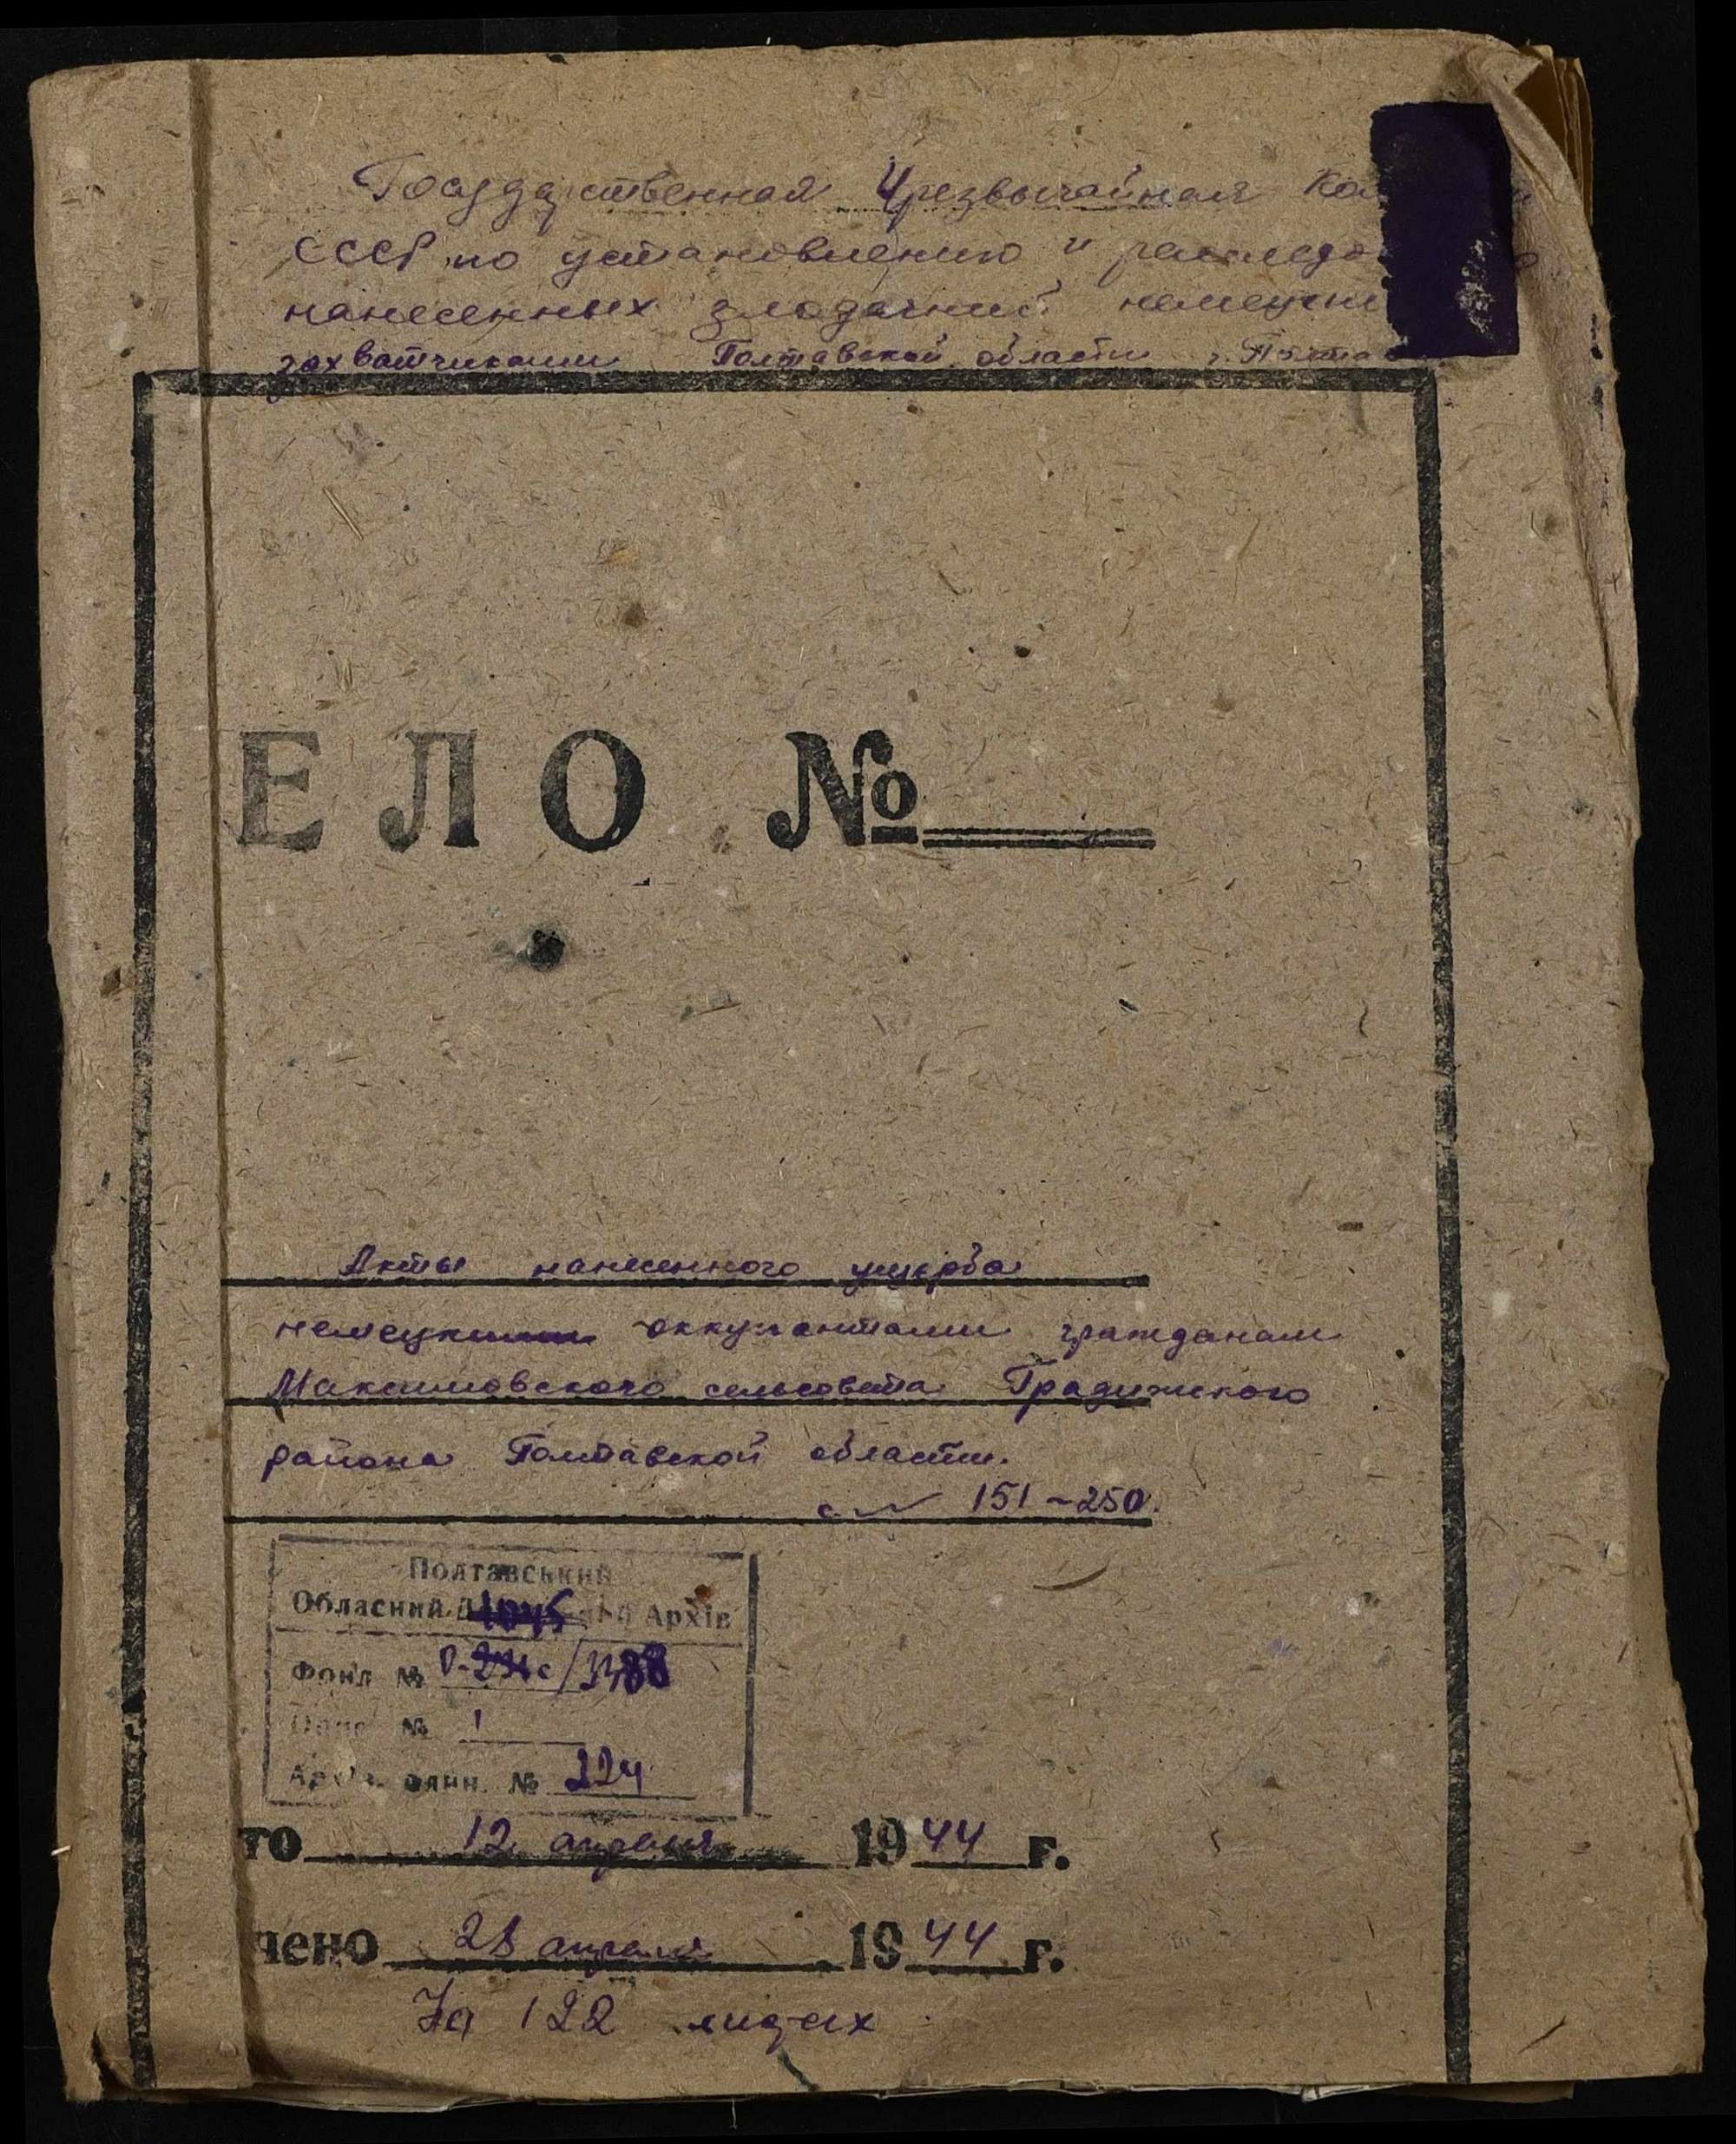 Государственная Чрезвычайная
СССР по установлению и
нанесенных злодеяний
захватчиками Полтавской области г.
ЕЛО №
Акты нанесенного ущерба
немецкими оккупантами гражданам
Максимовского сельсовета Градижского
района Полтавской области.
с № 151-250.
Полтавський
Обласний Архів
Фонд №
Опис № 1
Архів. один. № 224
то 12 апреля 1944 г.
чено 28 апреля 1944 г.
На 122 листах